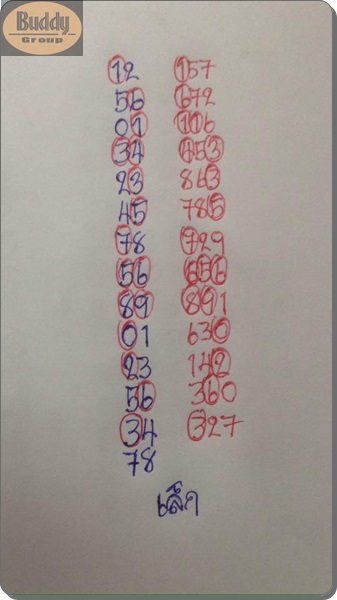 Buddy
Group
12 157
56 672
01 116
34 453
23 863
45 785
78 729
56 656
89 891
01 630
23 142
56 360
34 327
78
เล็ก